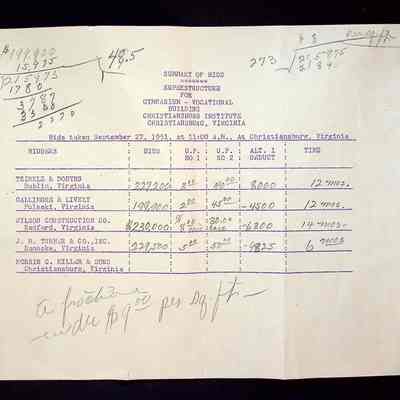 $ 199,900
15,975
215,975
1780
3787
3560
2270
49.5
273
$ 8
215,975
2184
SUMMARY OF BIDS
SUPERSTRUCTURE
FOR
GYMNASIUM - VOCATIONAL
BUILDING
CHRISTIANSBURG INSTITUTE
CHRISTIANSBURG, VIRGINIA
Bids taken September 27, 1951, at 11:00 A.M., At Christiansburg, Virginia
BIDDERS BIDS U.P. NO 1 U.P. NO 2 ALT. 1 DADUCT TIME
TRINKLE & DOBYNS
Dublin, Virginia 227,200 3.00 40.00 8000 12 mos.
GALLIMORE & LIVELY
Pulaski, Virginia 198,000 2.00 45.00 -4500 12 mos.
WILSON CONSTRUCTION CO.
Radford, Virginia $230,000 30.00 -6200 14 mos.
J. H. TURNER & CO., INC.
Roanoke, Virginia 229,500 5.00 50.00 -9825 6 mos
& SONS
Christiansburg, Virginia
a fraction
under $9.00 per sq. ft.